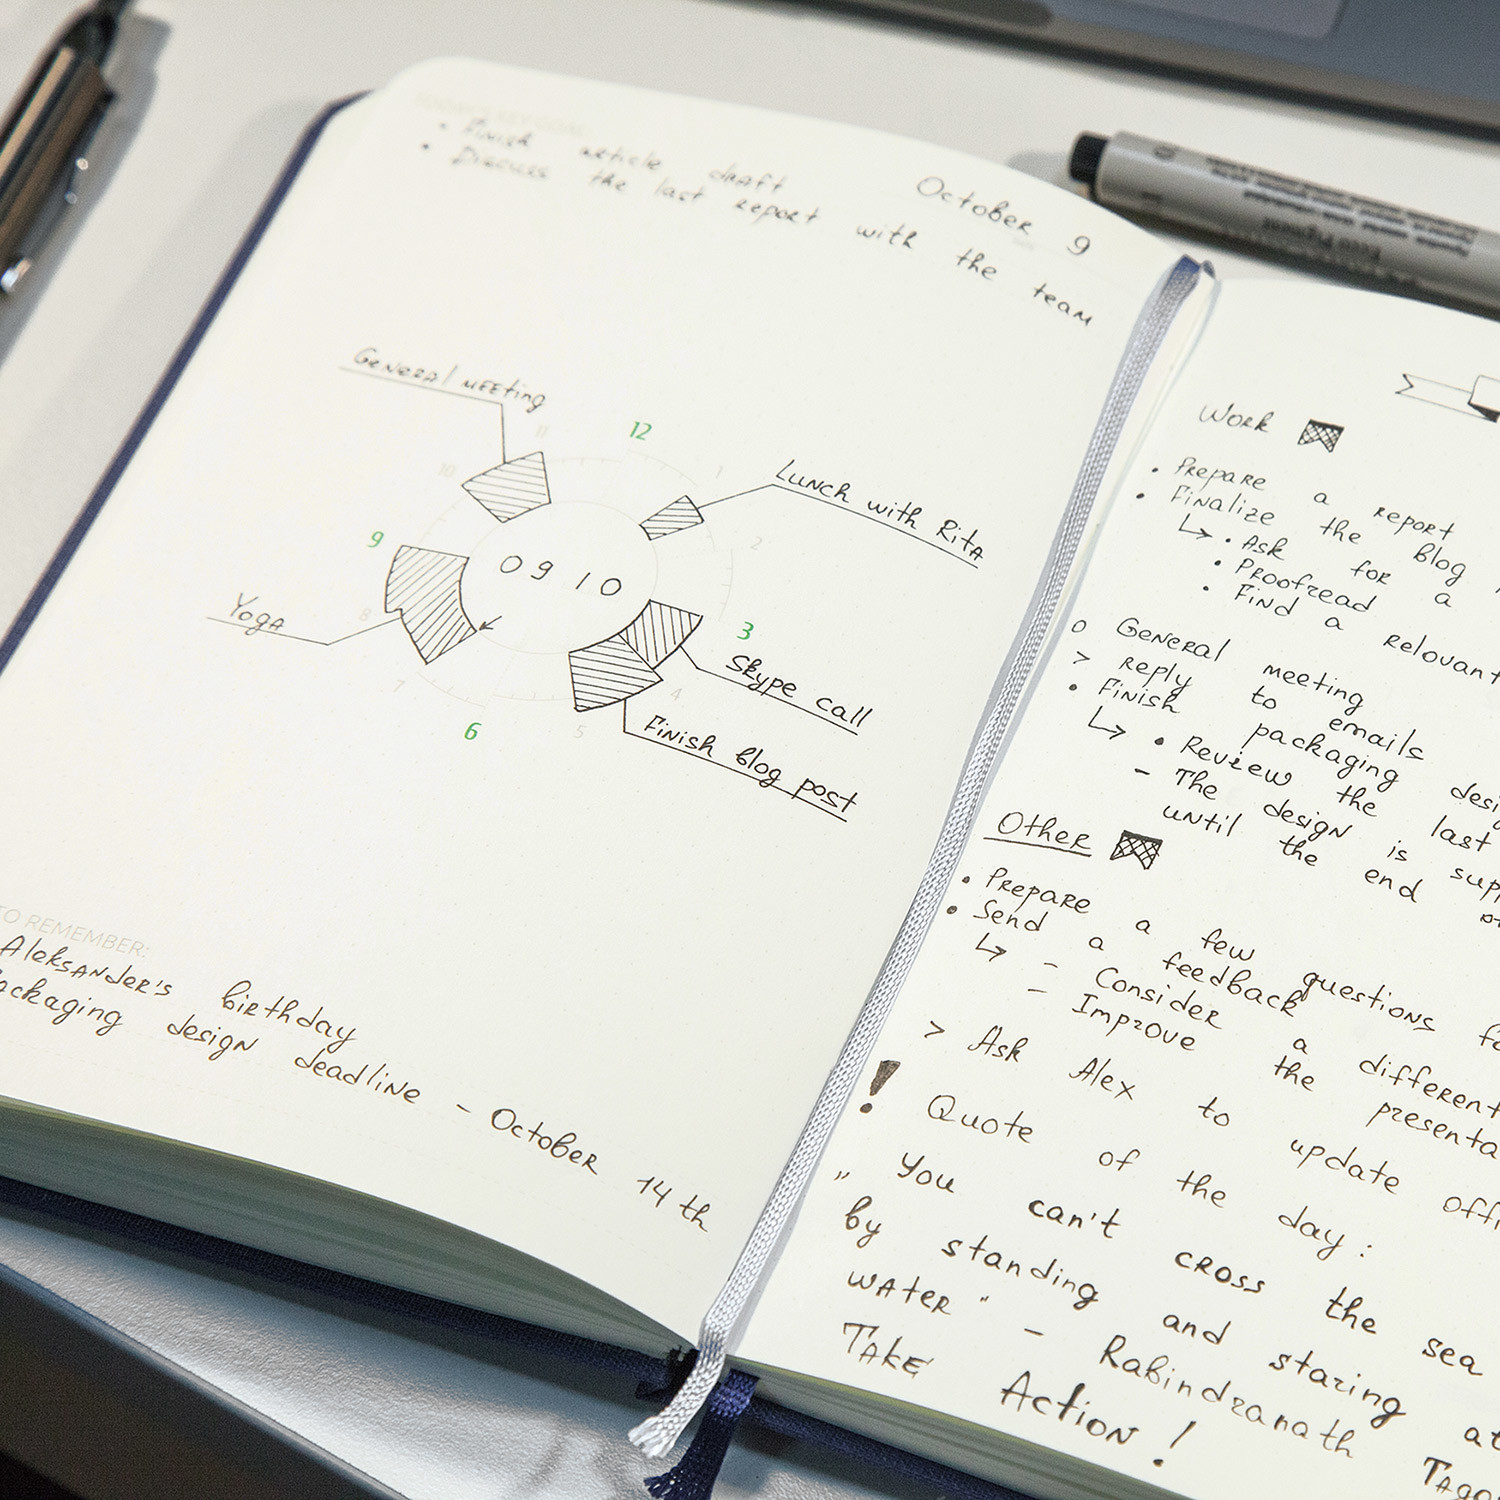 • Finish article draft
• Discuss the last report with the team
October 9
General meeting
Lunch with Rita
Yoga
Skype call
Finish blog post
09 10
12
1
2
3
4
5
6
7
8
9
10
11
TO REMEMBER:
Aleksander's birthday
Packaging design deadline - October 14th
Work
• Prepare a report
• Finalize the blog
• Ask for a
• Proofread
• Find a relovant
o General meeting
> reply to emails
• Finish packaging
• Review the last
- The design is
until the end
Other
• Prepare a few questions
• Send a feedback
- Consider a different
- Improve the
> Ask Alex to update
! Quote of the day:
„ You can't cross the sea
by standing and staring at
water " - Rabindranath
Take Action!